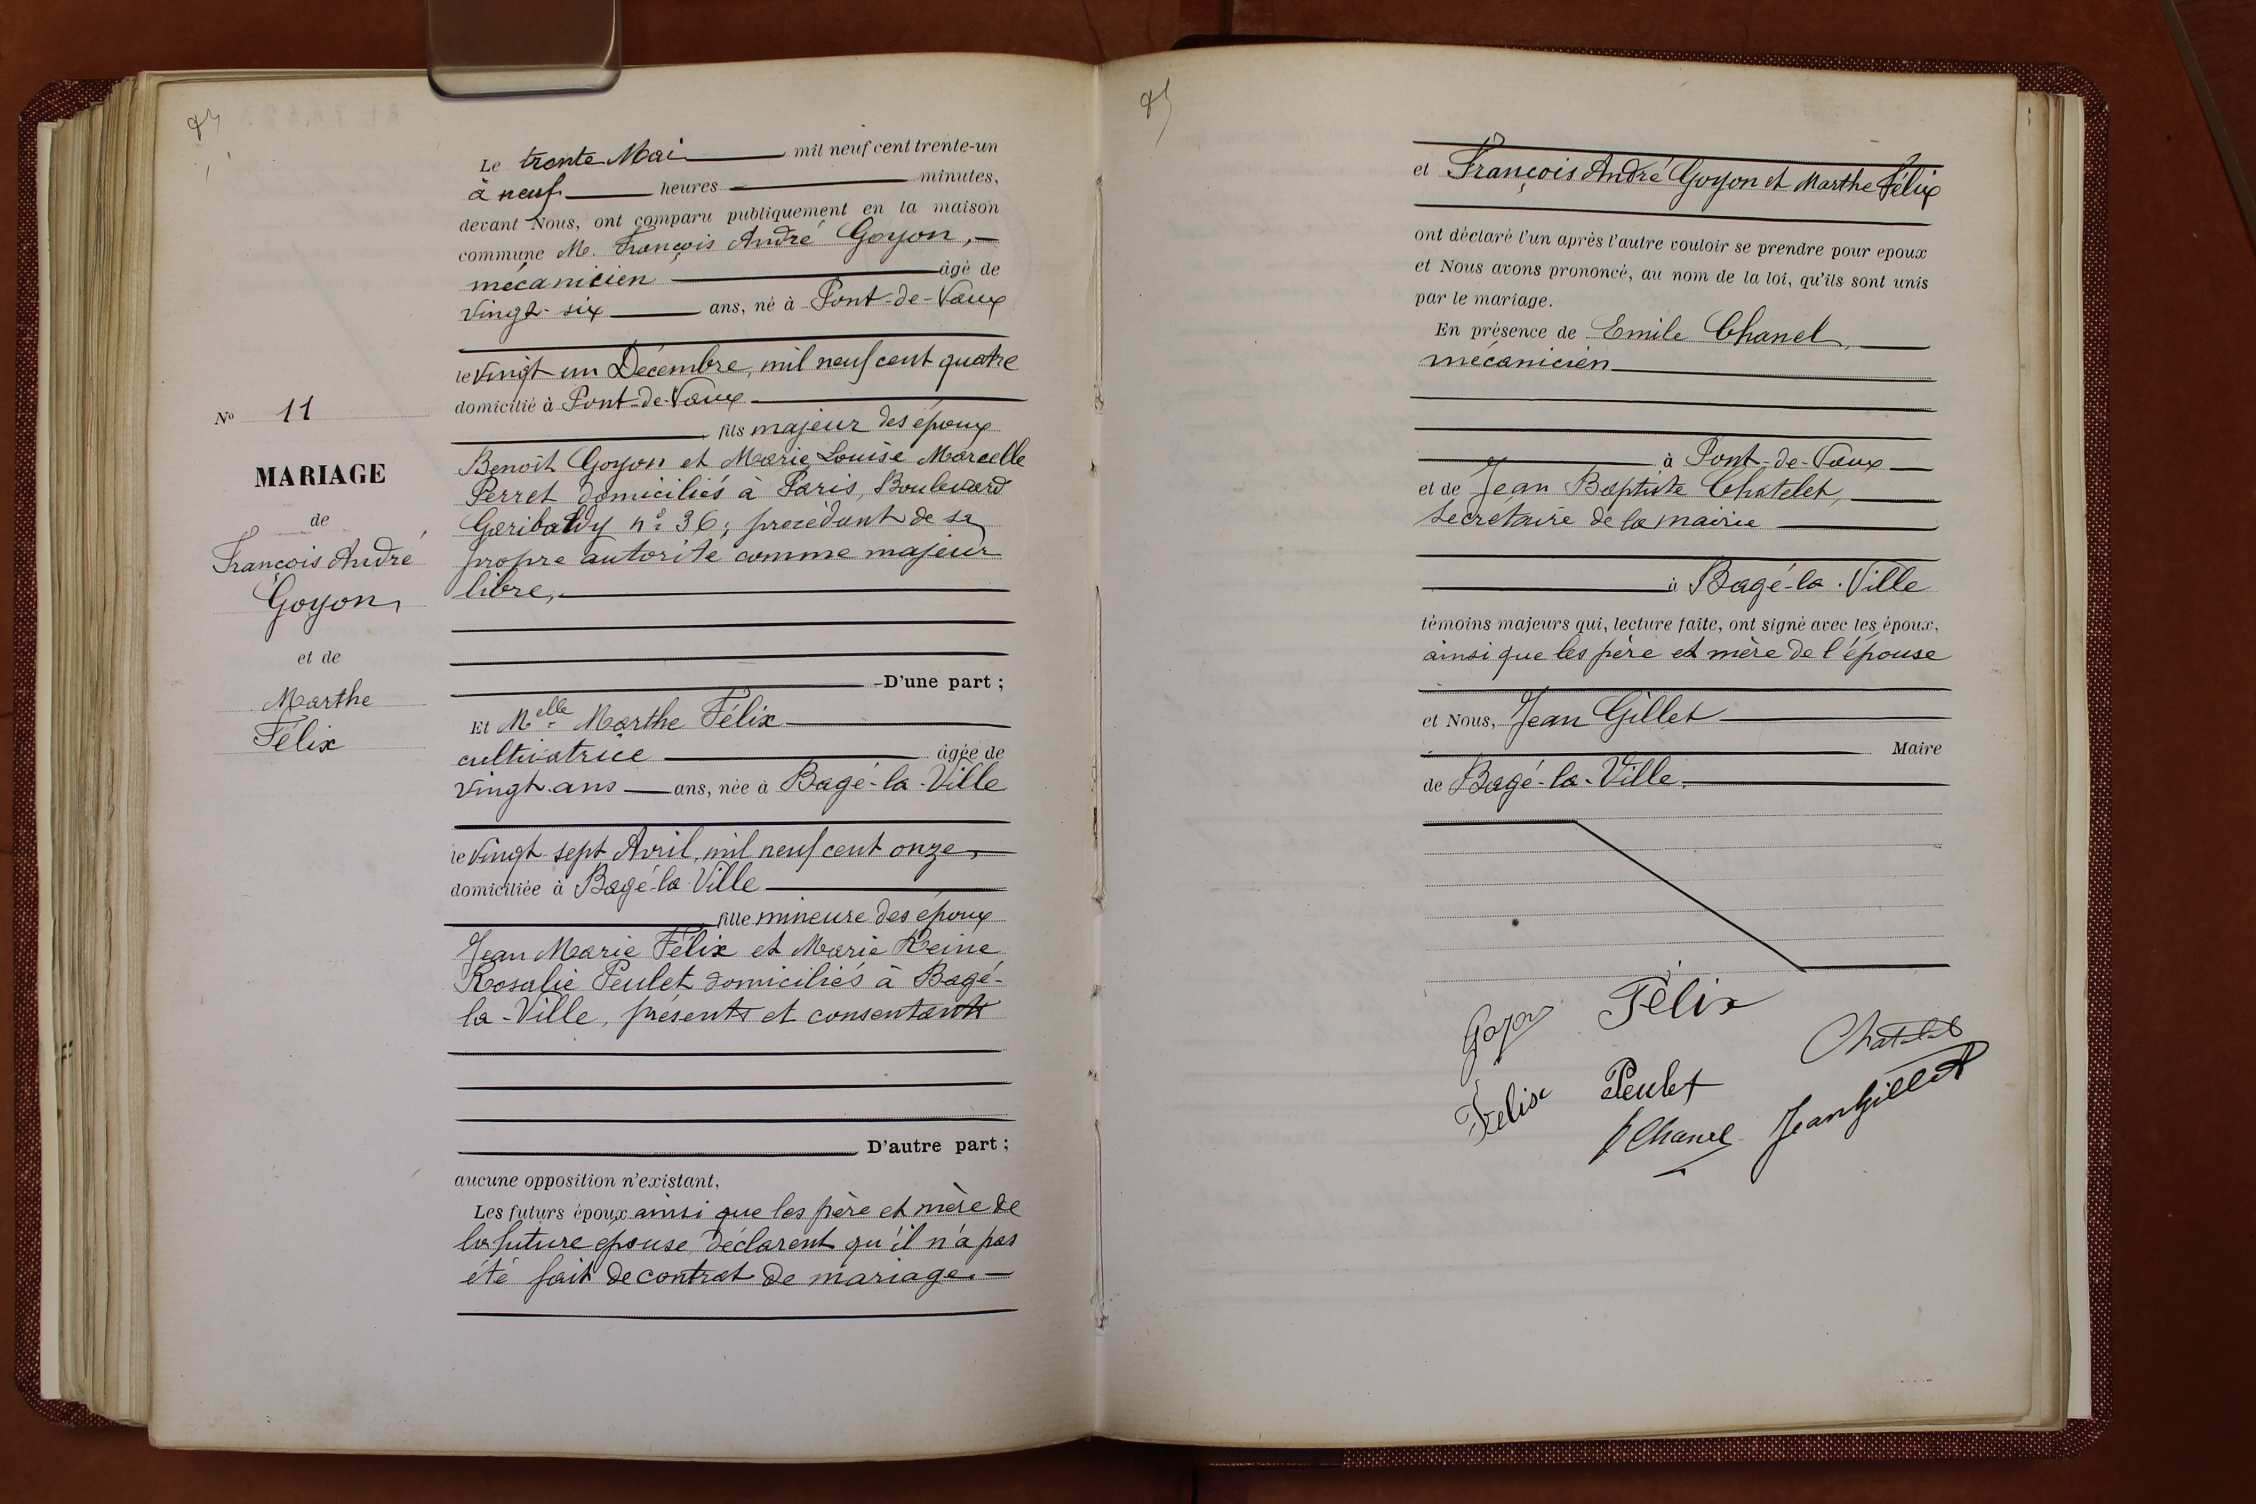 Le trente Mai mil neuf cent trente-un
à neuf heures minutes,
devant Nous, ont comparu publiquement en la maison
commune M. François André Goyon,
mécanicien âgé de
vingt-six ans, né à Pont-de-Vaux
le vingt un Décembre, mil neuf cent quatre
domicilié à Pont-de-Vaux
fils majeur des époux
Benoît Goyon et Marie Louise Marcelle
Perret domiciliés à Paris, Boulevard
Garibaldy n° 36; procédant de sa
propre autorité comme majeur
libre,
D'une part;
Et Melle Marthe Félix
cultivatrice âgée de
vingt-ans ans, née à Bagé-la-Ville
le vingt-sept Avril, mil neuf cent onze,
domiciliée à Bagé-la-Ville
fille mineure des époux
Jean Marie Félix et Marie Reine
Rosalie Peulet domiciliés à Bagé-
la-Ville, présents et consentants
D'autre part;
aucune opposition n'existant,
Les futurs époux ainsi que les père et mère de
la future épouse déclarent qu'il n'a pas
été fait de contrat de mariage.
No 11
MARIAGE
de
François André
Goyon
et de
Marthe
Félix
et François André Goyon et Marthe Félix
ont déclaré l'un après l'autre vouloir se prendre pour epoux
et Nous avons prononcé, au nom de la loi, qu'ils sont unis
par le mariage.
En présence de Emile Chanel,
mécanicien
à Pont-de-Vaux
et de Jean Baptiste Chatelet,
secrétaire de la mairie
à Bagé-la-Ville
témoins majeurs qui, lecture faite, ont signé avec les époux,
ainsi que les père et mère de l'épouse
et Nous, Jean Gillet
Maire
de Bagé-la-Ville.
Goyon Félix
Chatelet
Félix Peulet
Chanel Jean Gillet